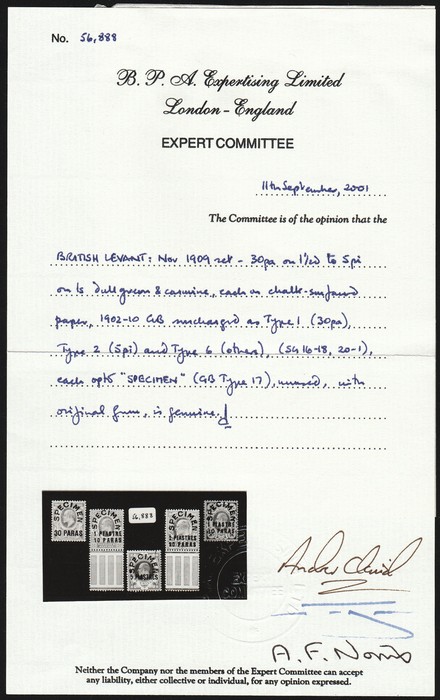 No. 56,888
B. P. A. Expertising Limited
London - England
EXPERT COMMITTEE
11th September, 2001
The Committee is of the opinion that the
BRITISH LEVANT: Nov 1909 set - 30pa on 1½d to 5pi
on 1s dull green & carmine, each on chalk-surfaced
paper, 1902-10 GB surcharged as Type 1 (30pa),
Type 2 (5pi) and Type 6 (others), (SG 16-18, 20-1),
each opt. "SPECIMEN" (GB Type 17), unused, with
original gum, is genuine.
SPECIMEN
30 PARAS
SPECIMEN
1 PIASTRE
10 PARAS
56,888
SPECIMEN
PIASTRES
PARAS
SPECIMEN
PIASTRE
PARAS
SPECIMEN
PIASTRES
A. F. Norris
Neither the Company nor the members of the Expert Committee can accept
any liability, either collective or individual, for any opinion expressed.